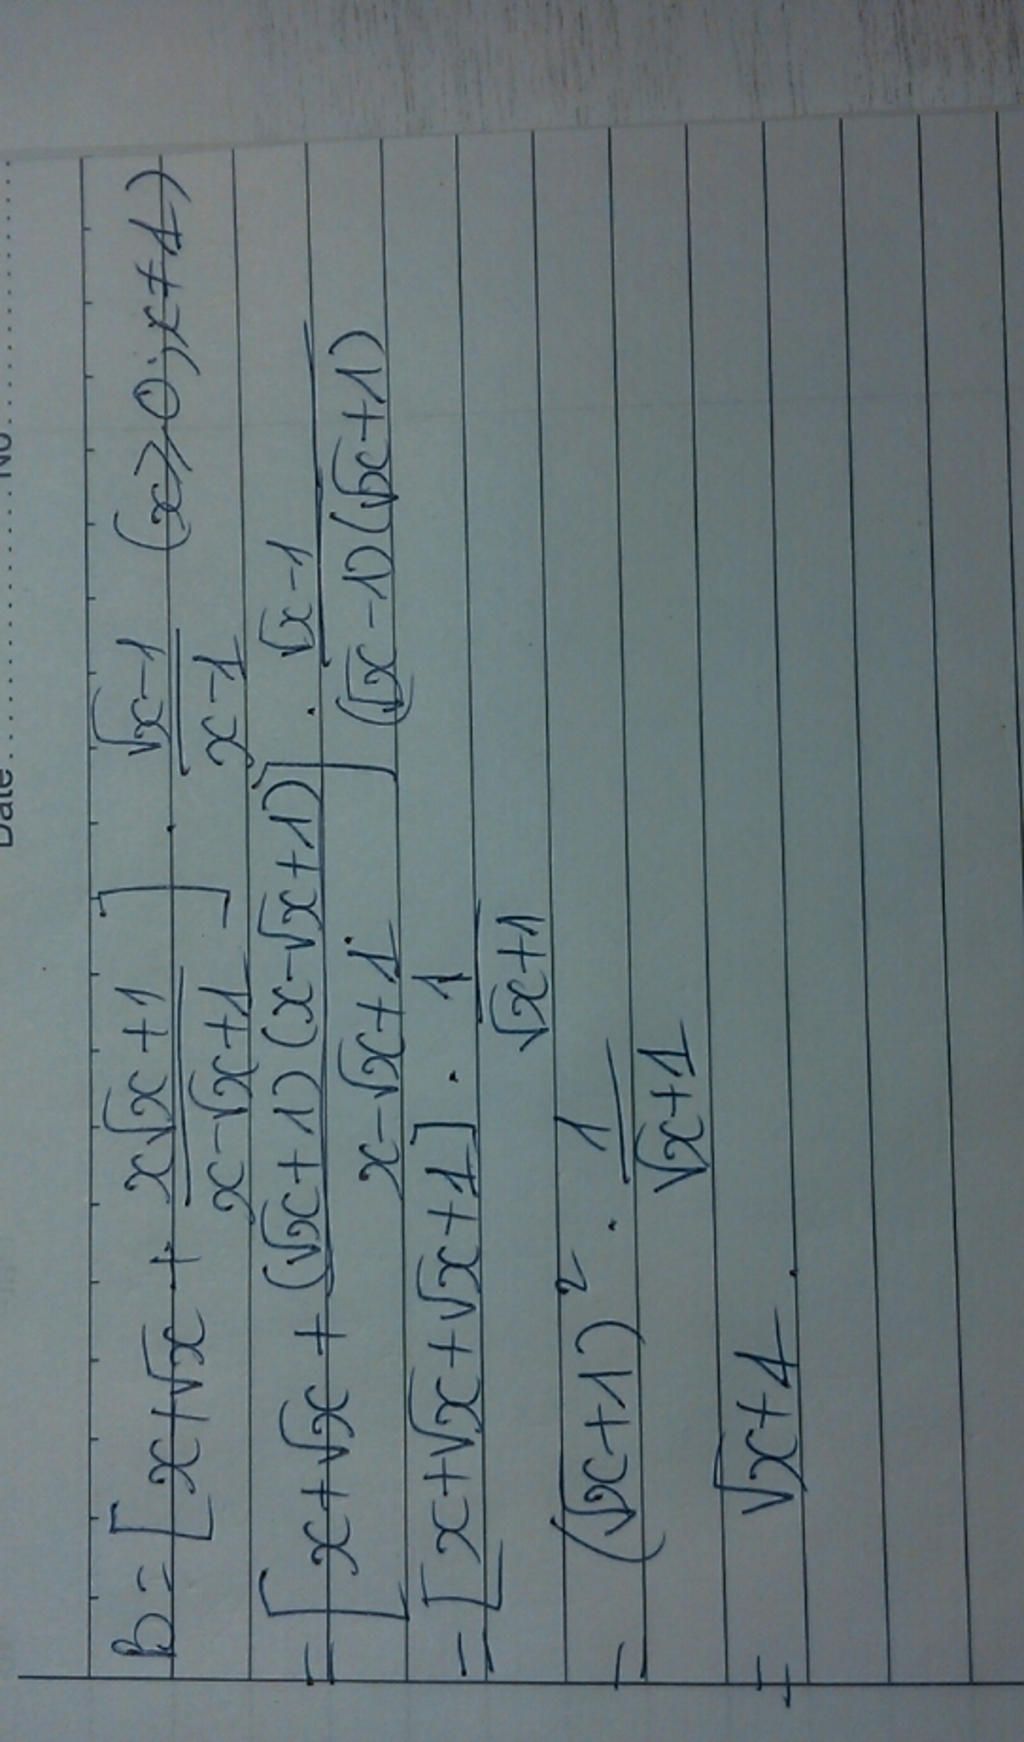 Date ........... No.........
B = [x+√x + (x√x+1)/(x-√x+1)] . (√x-1)/(x-1) (x≥0; x≠1)
= [x+√x + ((√x+1)(x-√x+1))/(x-√x+1)] . (√x-1)/((√x-1)(√x+1))
= [x+√x+√x+1] . 1/(√x+1)
= (√x+1)² . 1/(√x+1)
= √x+1.